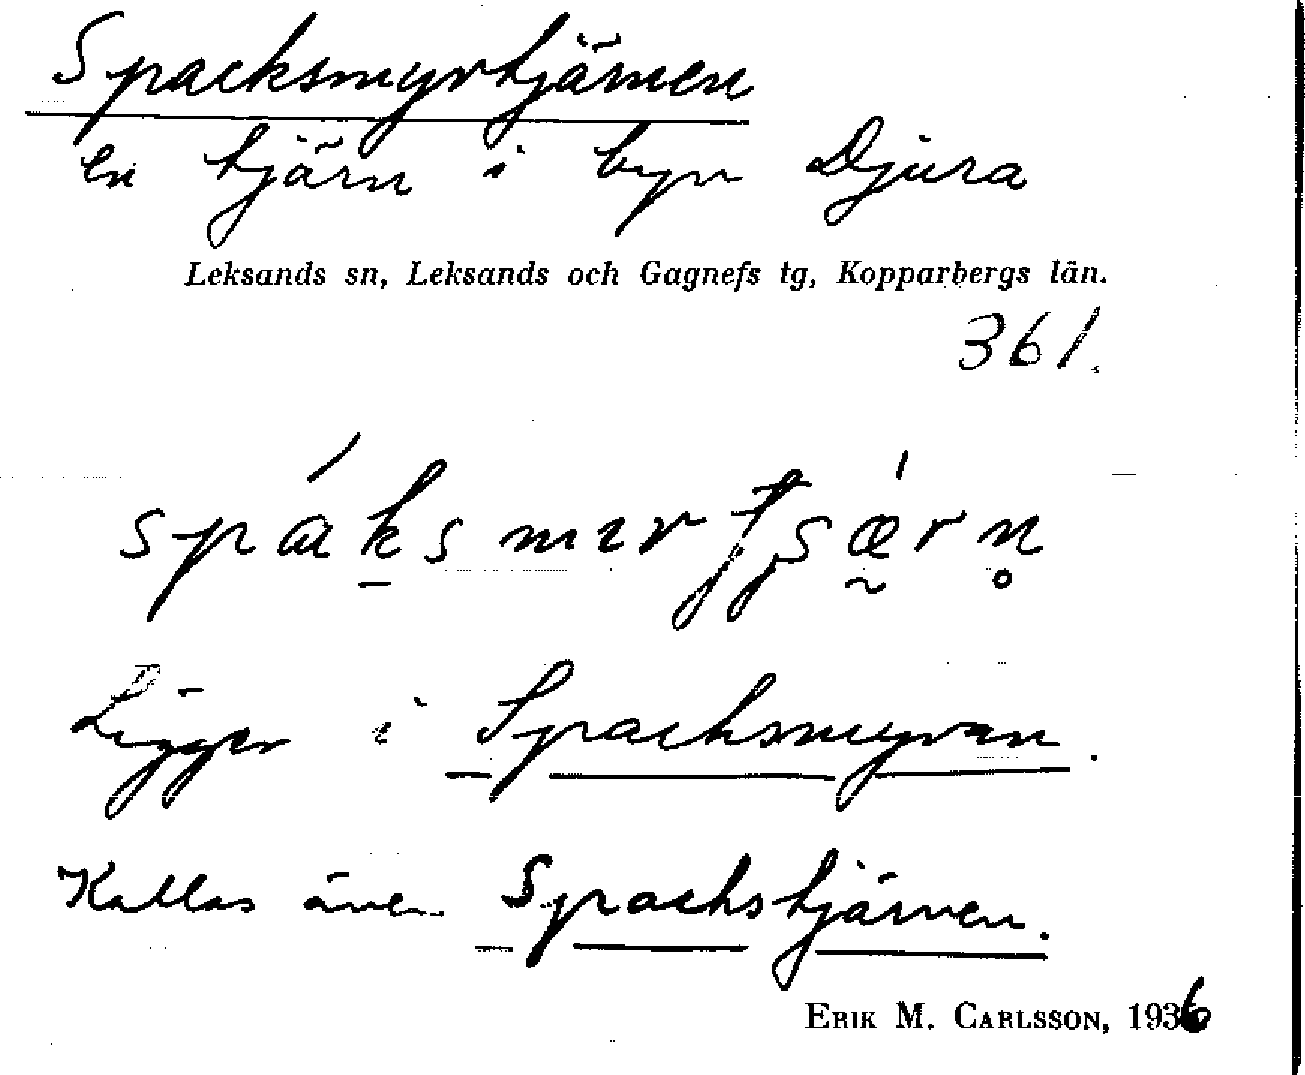 Spacksmyrtjärnen
En tjärn i byn Djura
Leksands sn, Leksands och Gagnefs tg, Kopparbergs län.
361.
Ligger i Spacksmyran.
Kallas även Spackstjärnen.
ERIK M. CARLSSON, 1936